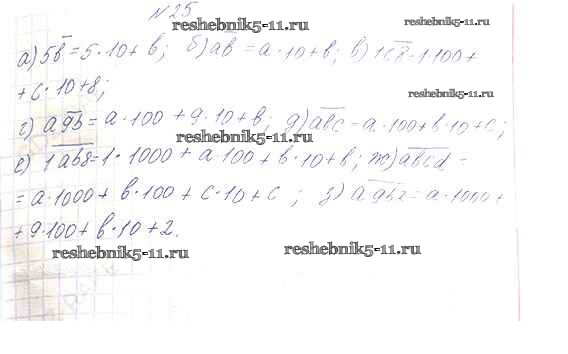 №25
reshebnik5-11.ru
reshebnik5-11.ru
а) 5b = 5·10 + b; б) ab = a·10 + b; в) 1c8 = 1·100 +
+ c·10 + 8;
reshebnik5-11.ru
г) a9b = a·100 + 9·10 + b; д) abc = a·100 + b·10 + c;
reshebnik5-11.ru
е) 1ab8 = 1·1000 + a·100 + b·10 + b; ж) abcd =
= a·1000 + b·100 + c·10 + c; з) a9b2 = a·1000 +
+ 9·100 + b·10 + 2.
reshebnik5-11.ru
reshebnik5-11.ru